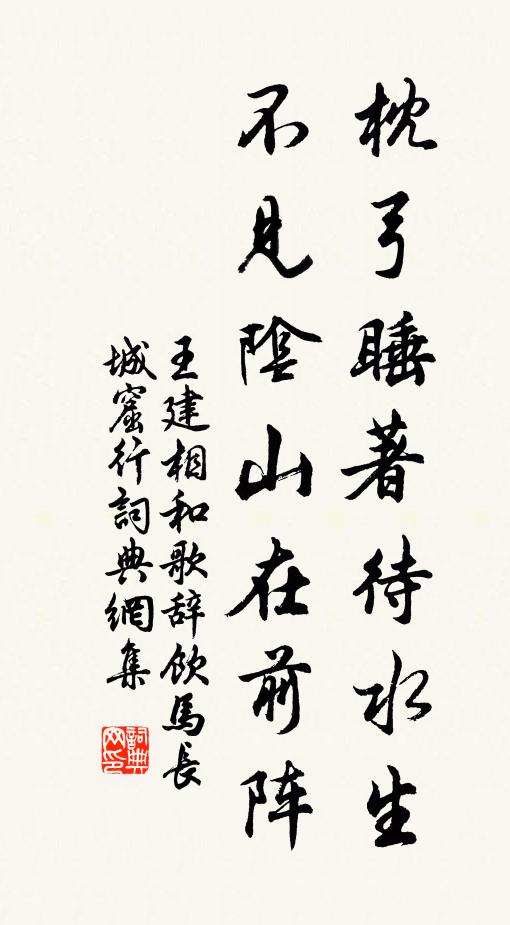 枕弓睡著待水生
不見陰山在前阵
王建相和歌辞飲馬長
城窟行詞典網集
詞典
网印